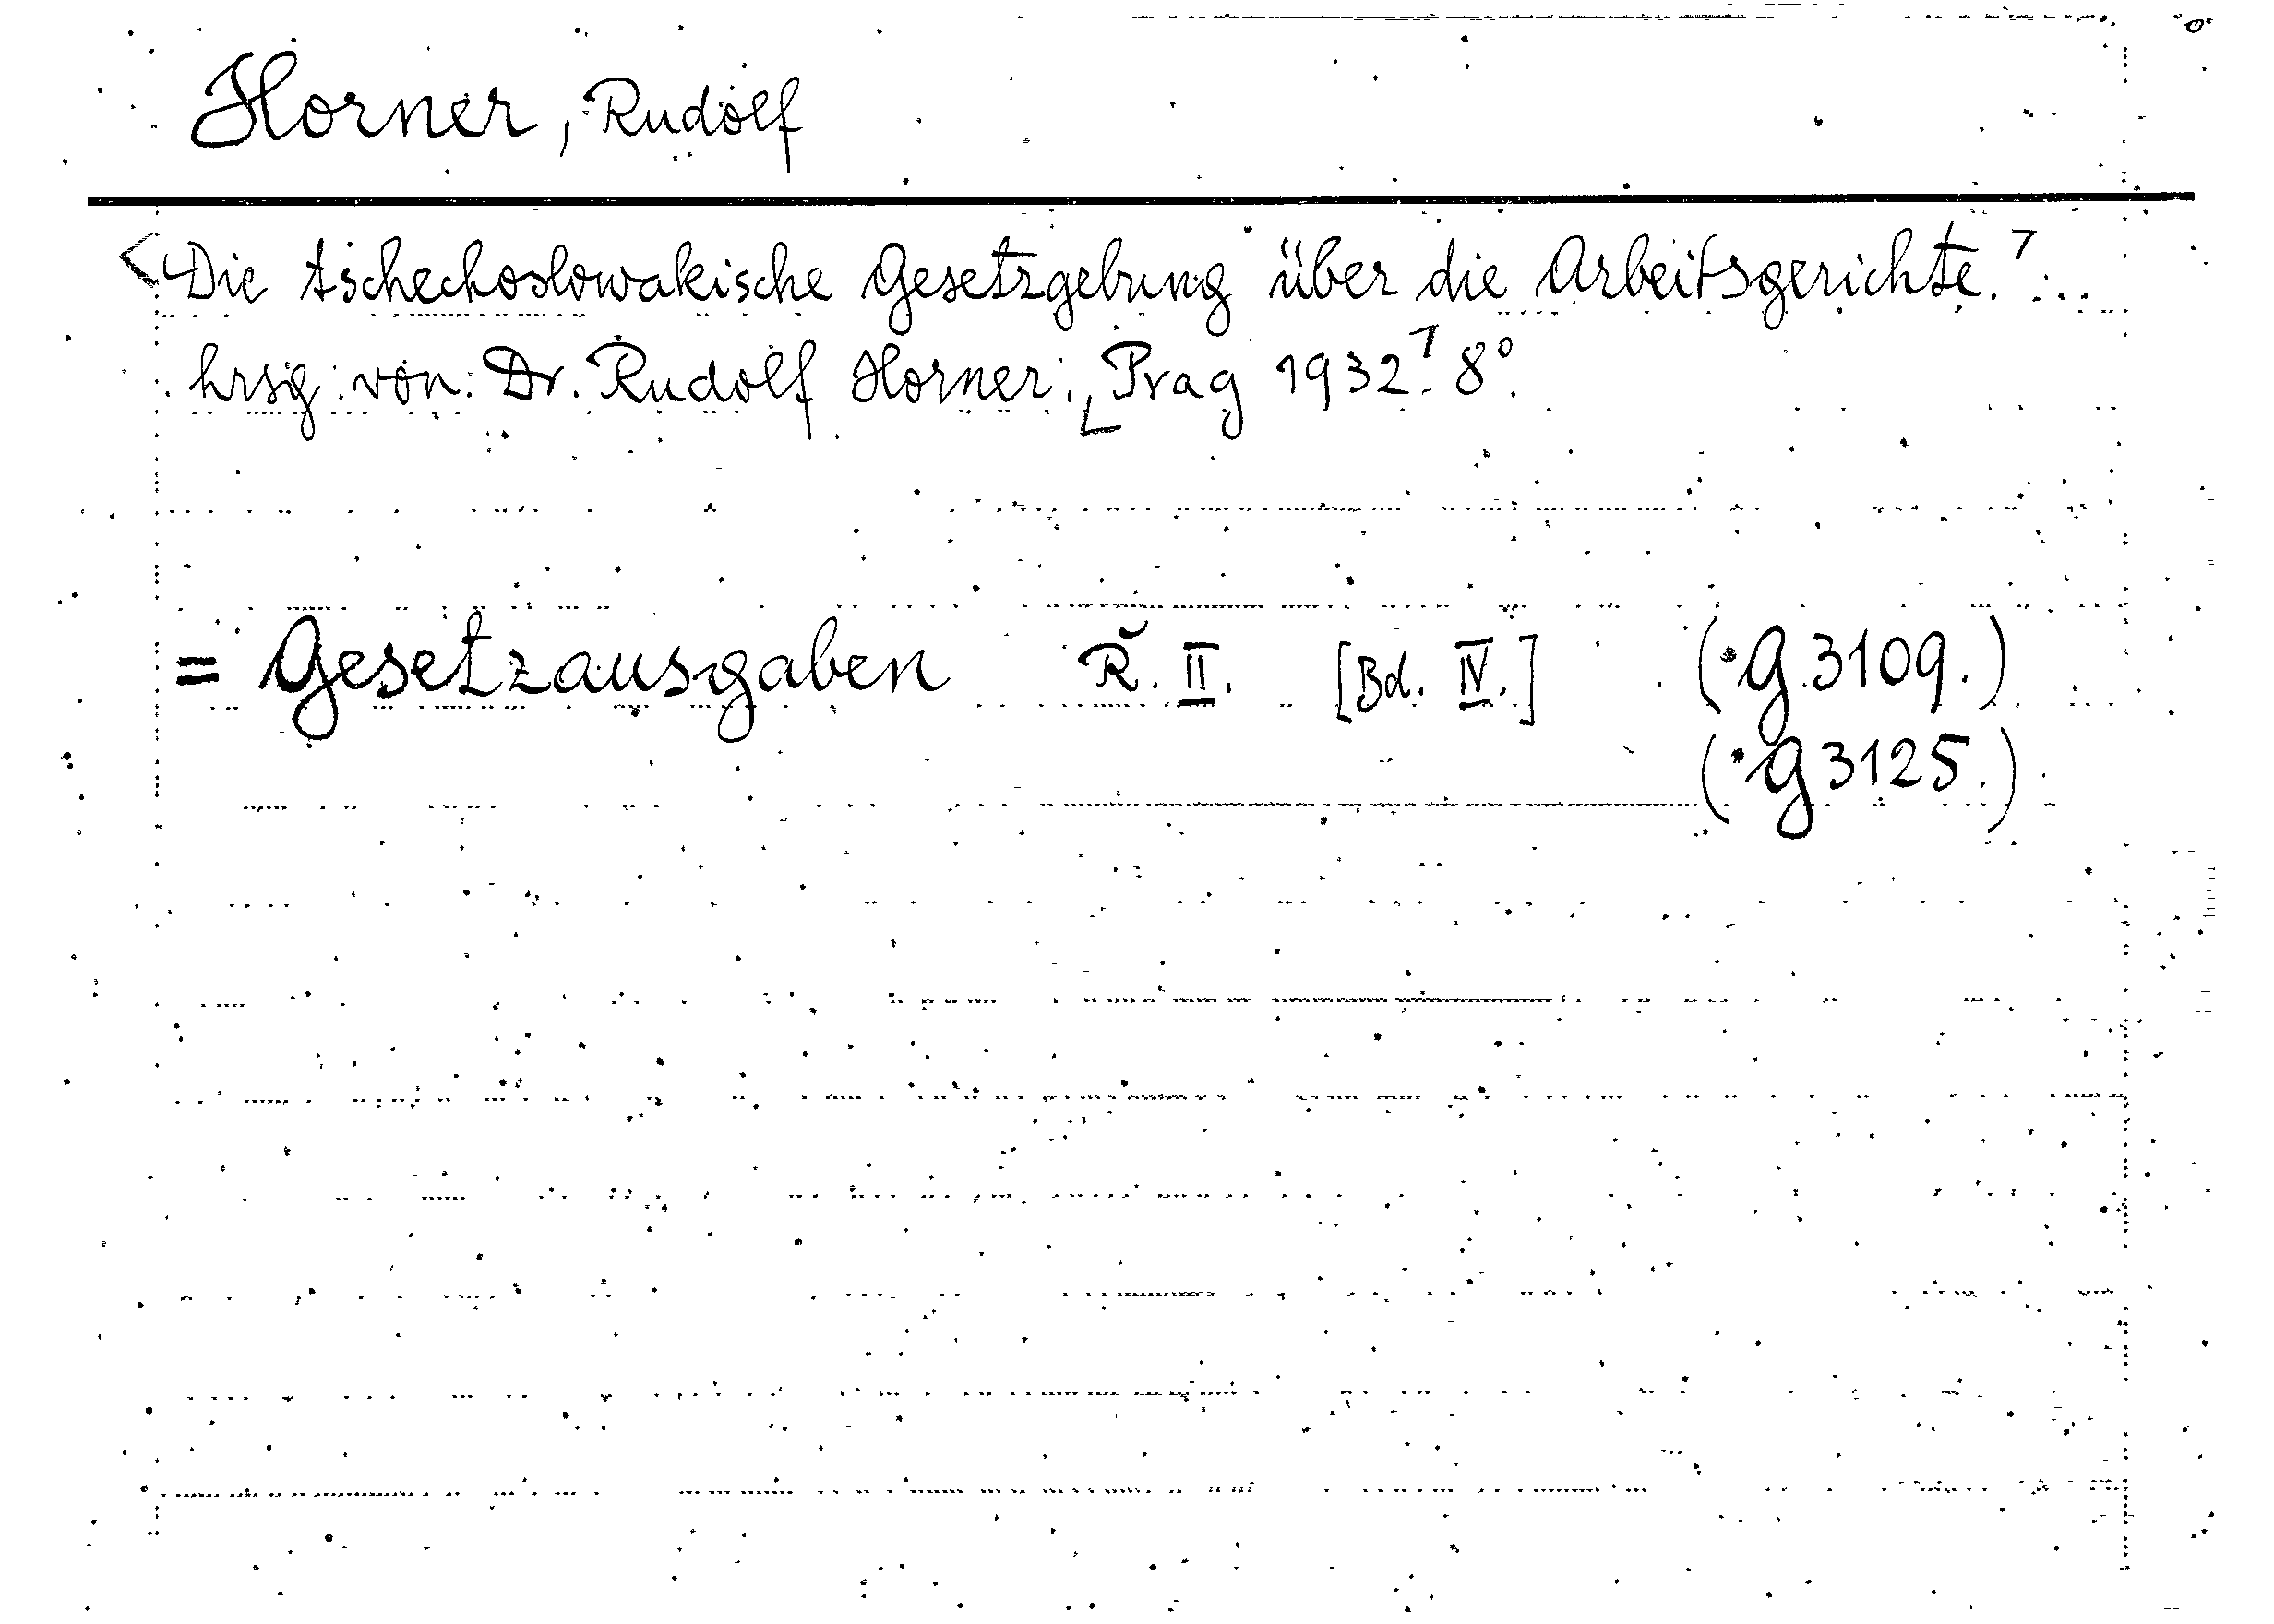 Horner, Rudolf
<Die tschechoslowakische Gesetzgebung über die Arbeitsgerichte.⁊...
hrsg. von Dr. Rudolf Horner. ⌊Prag 1932⁊. 8°.
= Gesetzausgaben Ř. II. [Bd. IV.] (•G 3109.)
(•G 3125.)